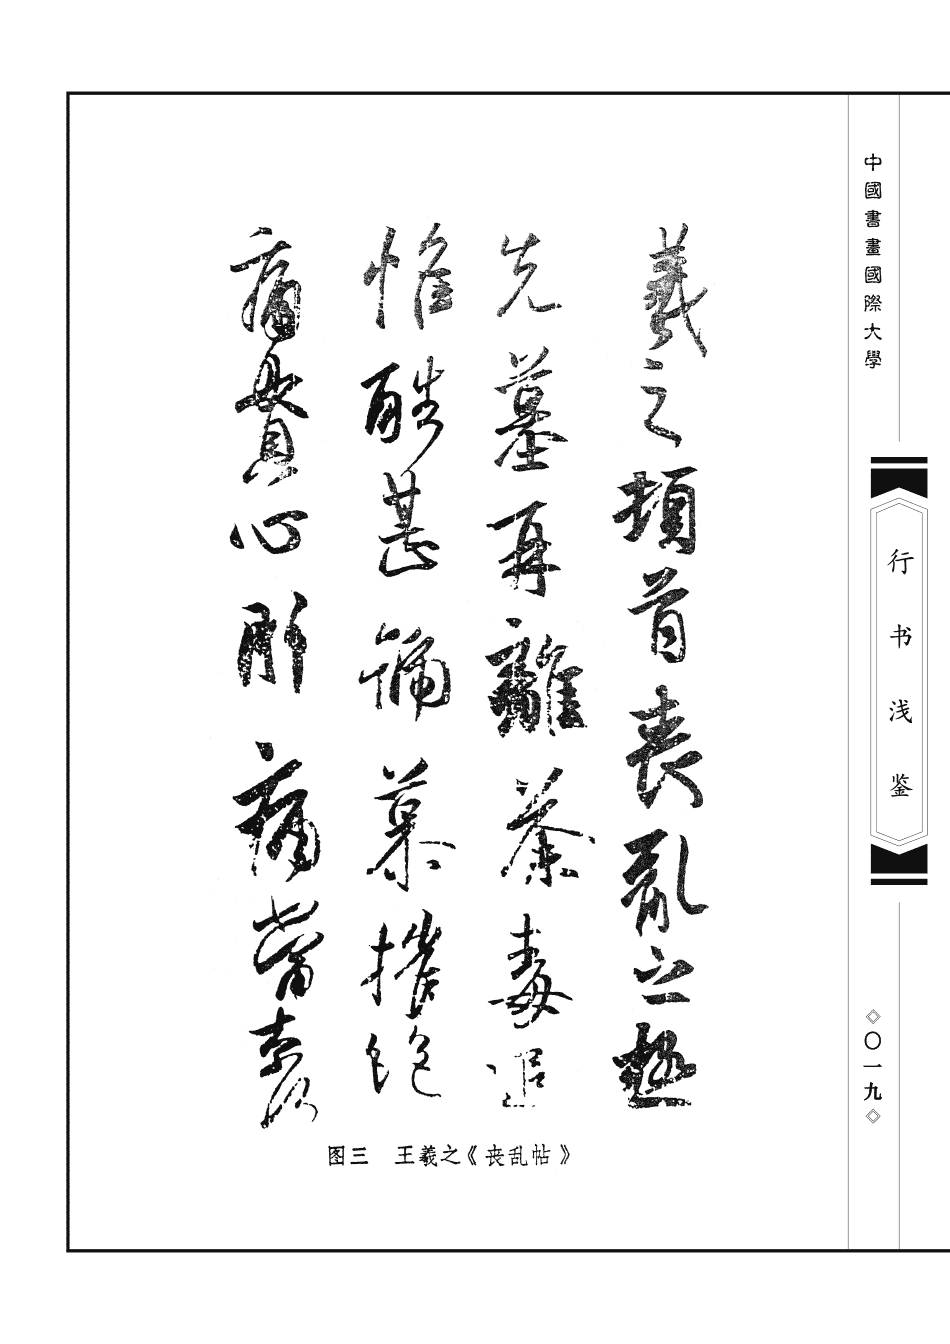 中國書畫國際大學
行书浅鉴
◇〇一九◇
羲之頓首喪亂之極
先墓再離荼毒追
惟酷甚號慕摧絕
痛貫心肝痛當奈何
图三　王羲之《丧乱帖》